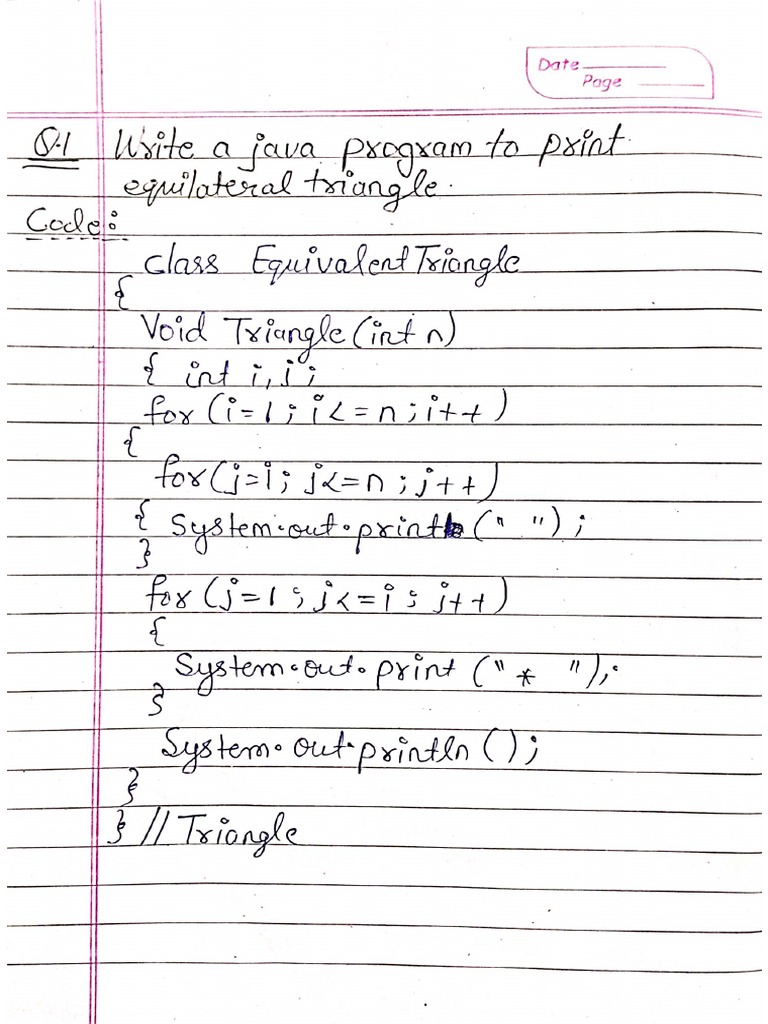 Date
Page
Q.1 Write a java program to print
equilateral triangle.
Code:
class EquivalentTriangle
{
Void Triangle(int n)
{ int i, j;
for (i=1; i<=n; i++)
{
for(j=i; j<=n; j++)
{ System.out.print(" ");
}
for (j=1; j<=i; j++)
{
System.out.print (" * ");
}
System.out.println ();
}
} // Triangle